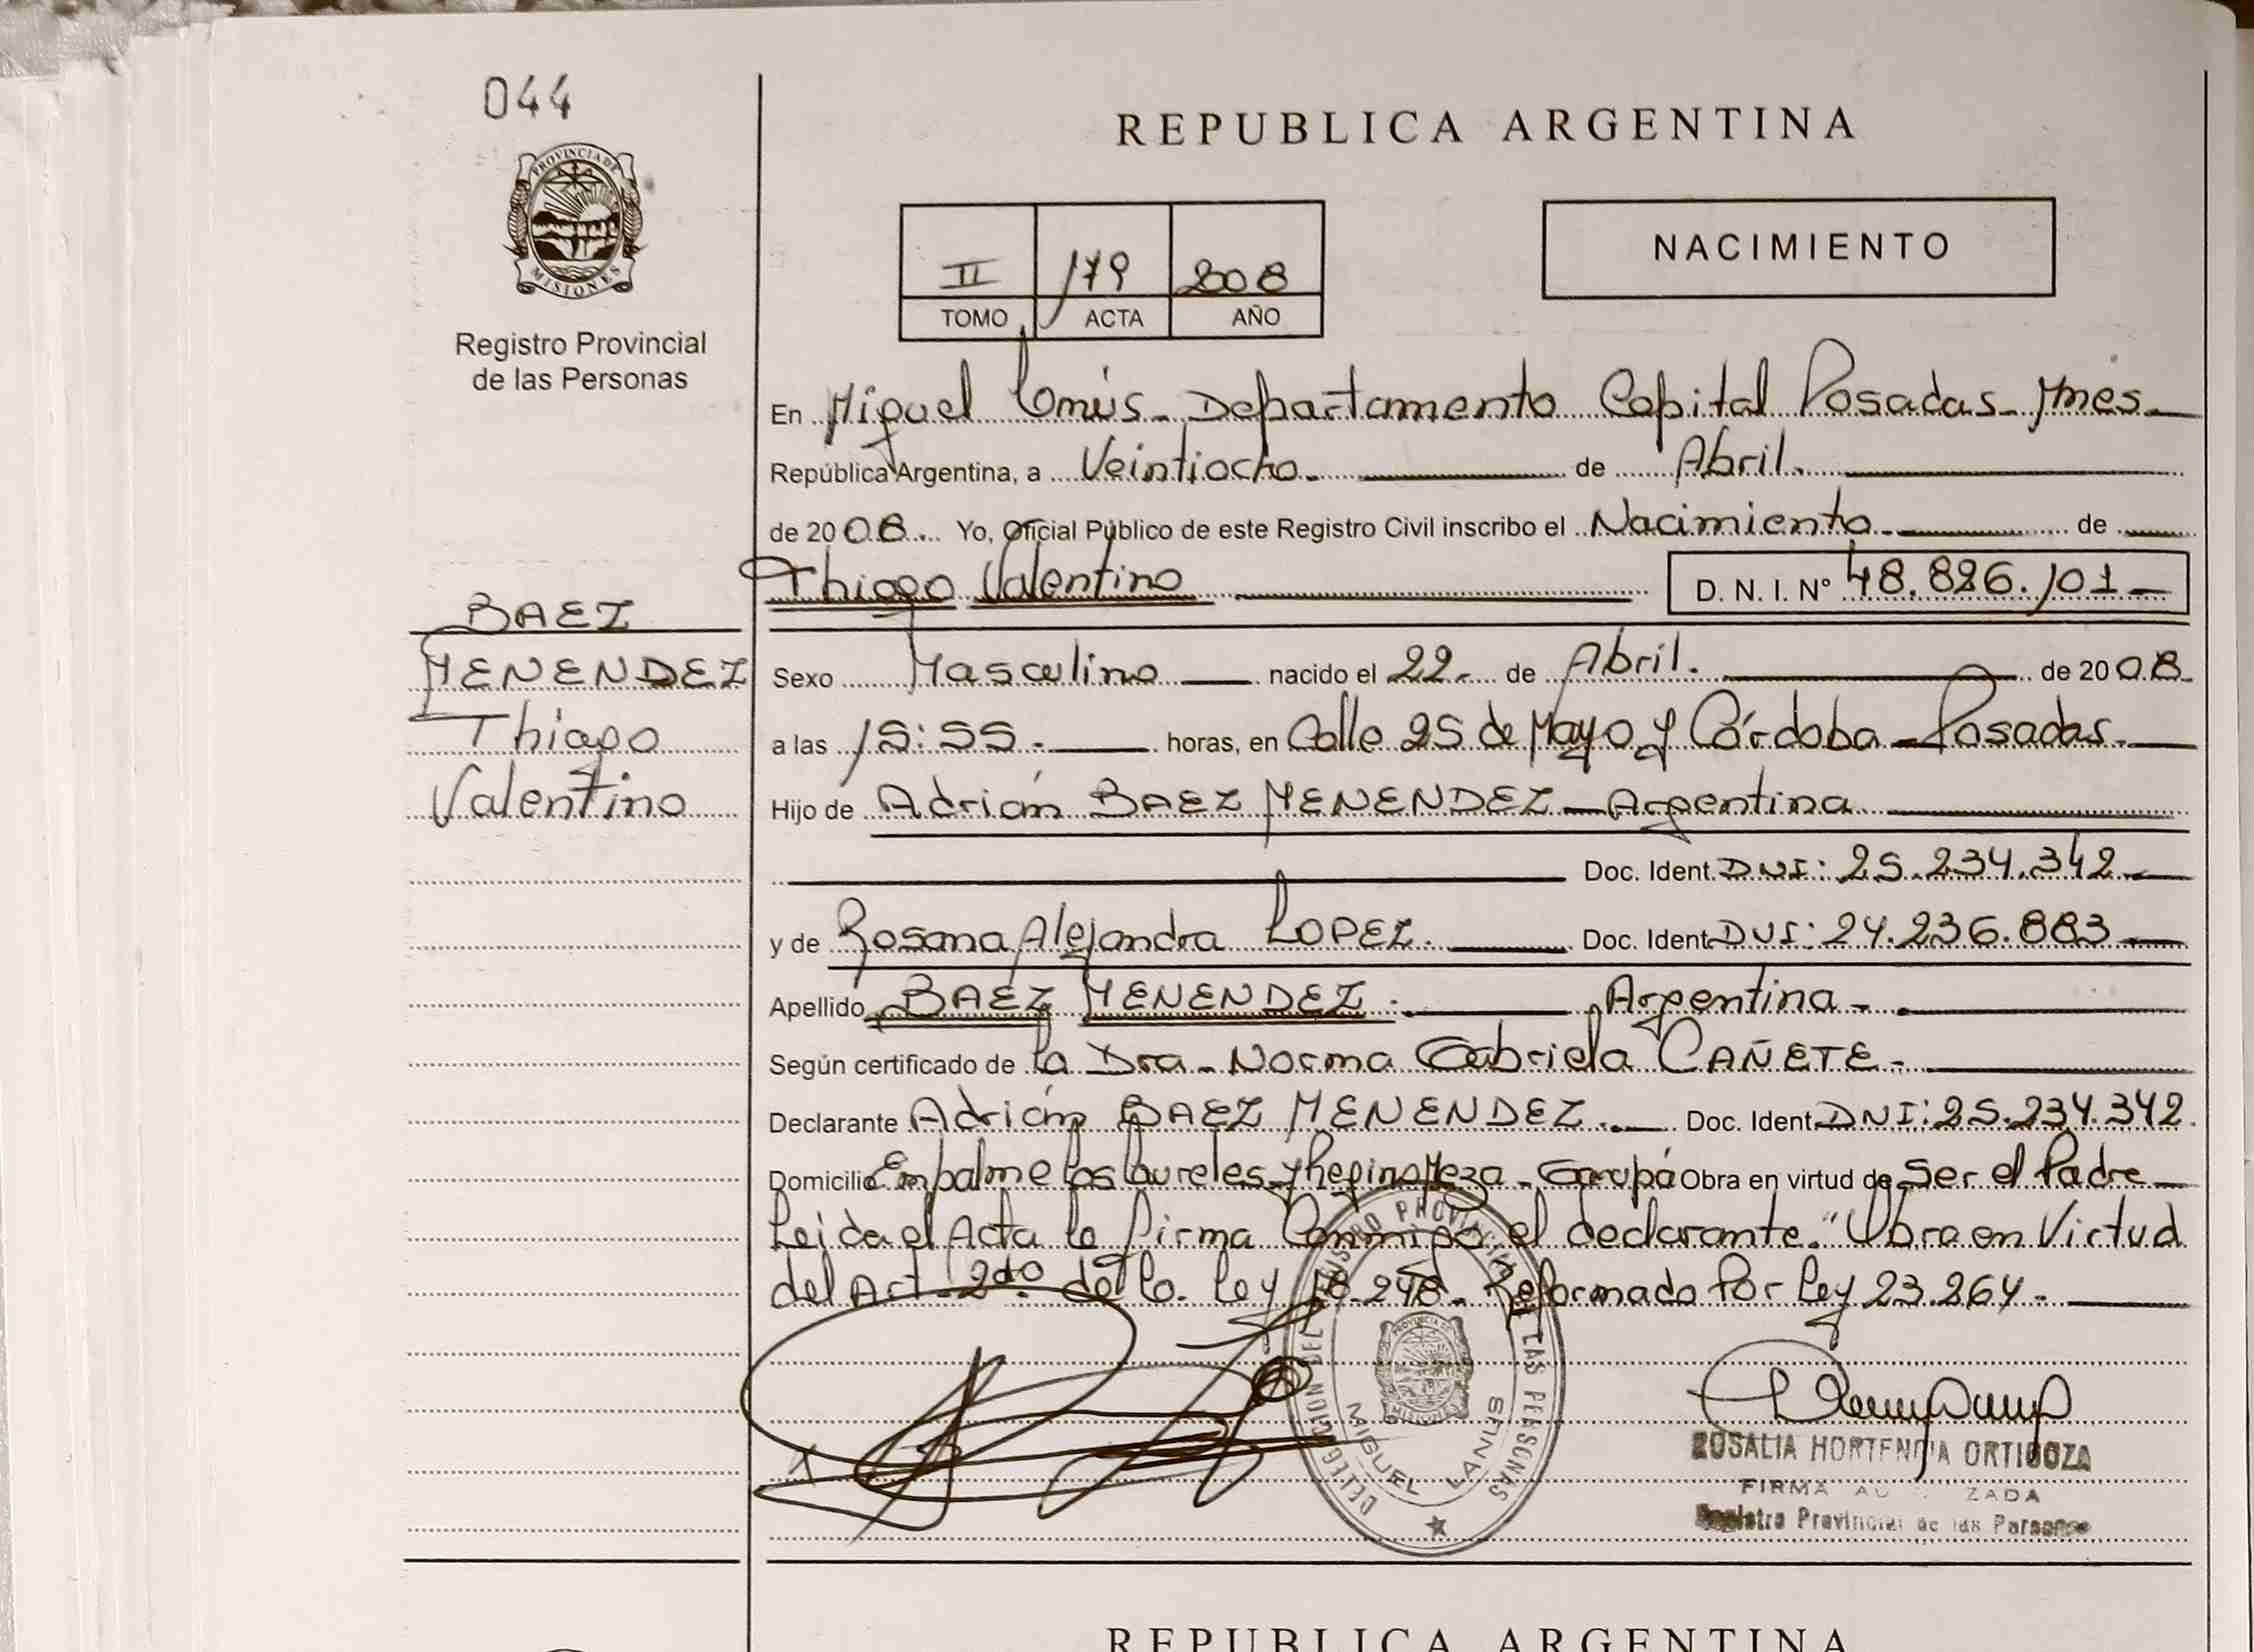 044
PROVINCIA DE
MISIONES
Registro Provincial
de las Personas
REPUBLICA ARGENTINA
II 179 2008
TOMO ACTA AÑO
NACIMIENTO
En Miguel Lanús - Departamento Capital Posadas - Mnes -
República Argentina, a Veintiocho. de Abril.
de 2008. Yo, Oficial Público de este Registro Civil inscribo el Nacimiento de
Thiago Valentino D. N. I. Nº 48.826.101 -
BAEZ
MENENDEZ
Thiago
Valentino
Sexo Masculino nacido el 22 - de Abril. de 2008.
a las 15:55. horas, en Calle 25 de Mayo y Córdoba - Posadas.
Hijo de Adrián BAEZ MENENDEZ - Argentina
Doc. Ident. DNI: 25.234.342 -
y de Rosana Alejandra LOPEZ. Doc. Ident DNI: 24.236.883 -
Apellido BAEZ MENENDEZ. Argentina -
Según certificado de la Dra - Norma Gabriela CAÑETE -
Declarante Adrián BAEZ MENENDEZ. Doc. Ident DNI: 25.234.342.
Domicilio Empalme los laureles y Regino Meza - Garupá Obra en virtud de ser el Padre
Leida el Acta la firma Conmigo el declarante. "Obra en Virtud
del Art. 2do. de la Ley 18.248 - Reformado Por Ley 23.264 -
DELEGACION DEL REGISTRO PROVINCIAL DE LAS PERSONAS
MIGUEL LANUS
ROSALIA HORTENCIA ORTIGOZA
FIRMA AUTORIZADA
Registro Provincial de las Personas
REPUBLICA ARGENTINA